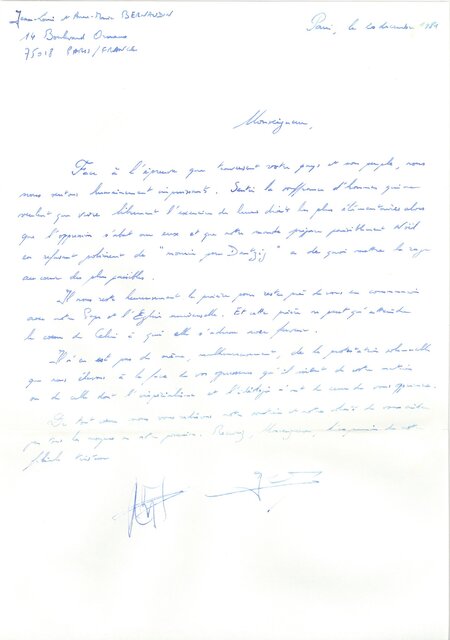 Jean-Louis et Anne-Marie BERNARDIN
14 Boulevard Ornano
75018 PARIS/FRANCE
Paris, le 20 décembre 1981
Monseigneur,
Face à l'épreuve que traversent votre pays et son peuple, nous
nous sentons humainement impuissants. Sentir la souffrance d'hommes qui ne
veulent que vivre librement l'exercice de leurs droits les plus élémentaires alors
que l'oppression s'abat sur eux et que notre monde prépare paisiblement Noël
en refusant poliment de "mourir pour Dantzig" a de quoi mettre la rage
au coeur des plus paisibles.
Il nous reste heureusement la prière pour rester près de vous en communion
avec notre Pape et l'Eglise universelle. Et cette prière ne peut qu'atteindre
le coeur de Celui à qui elle s'adresse avec ferveur.
Il n'en est pas de même, malheureusement, de la protestation
que nous élevons à la face de vos oppresseurs qu'il soient de votre nation
ou de celle dont l'impérialisme et l'idéologie
De tout coeur nous vous
Recevez, Monseigneur,